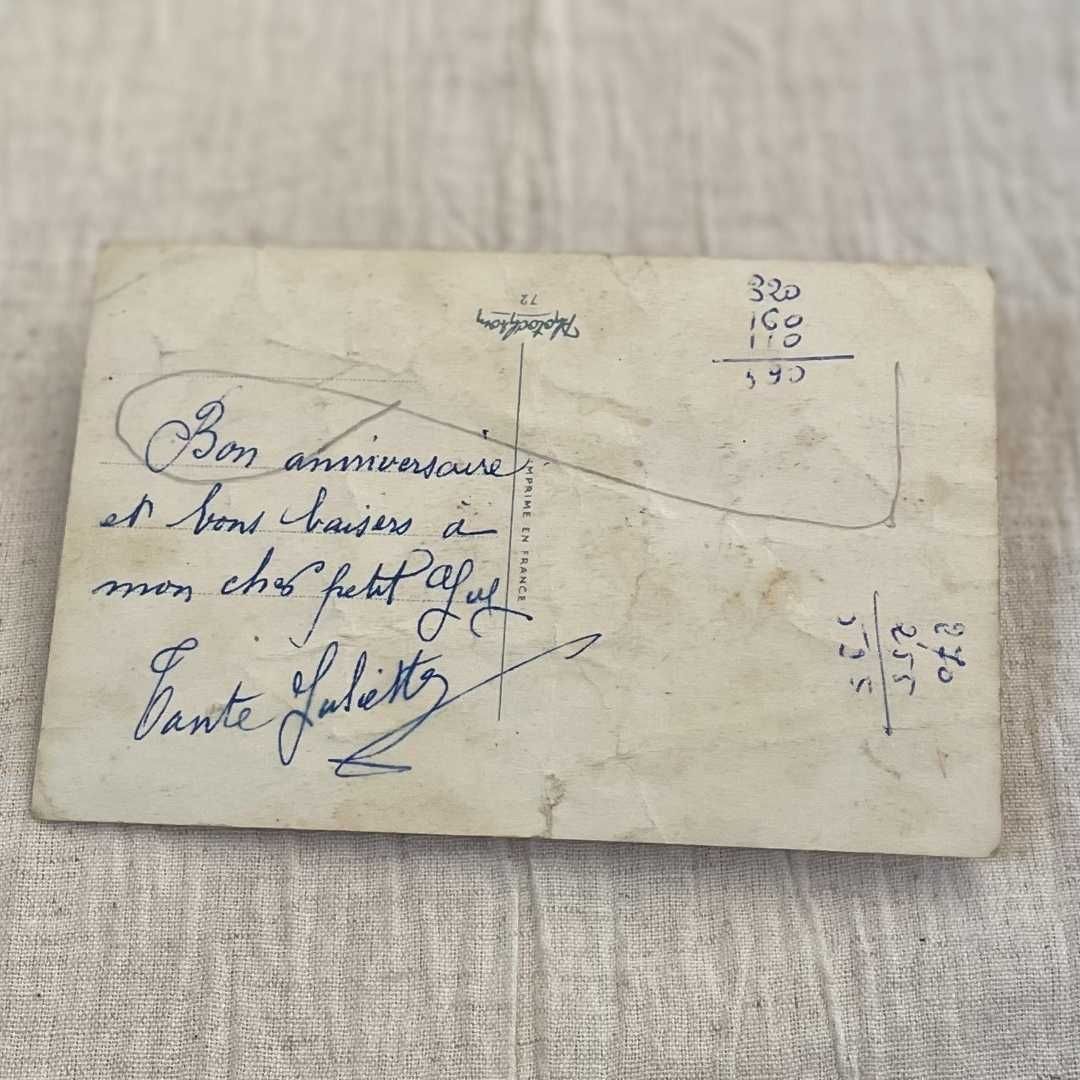 Bon anniversaire
et bons baisers à
mon cher petit Guy
Tante Juliette
Photochrom
72
IMPRIME EN FRANCE
320
160
110
590
270
255
525